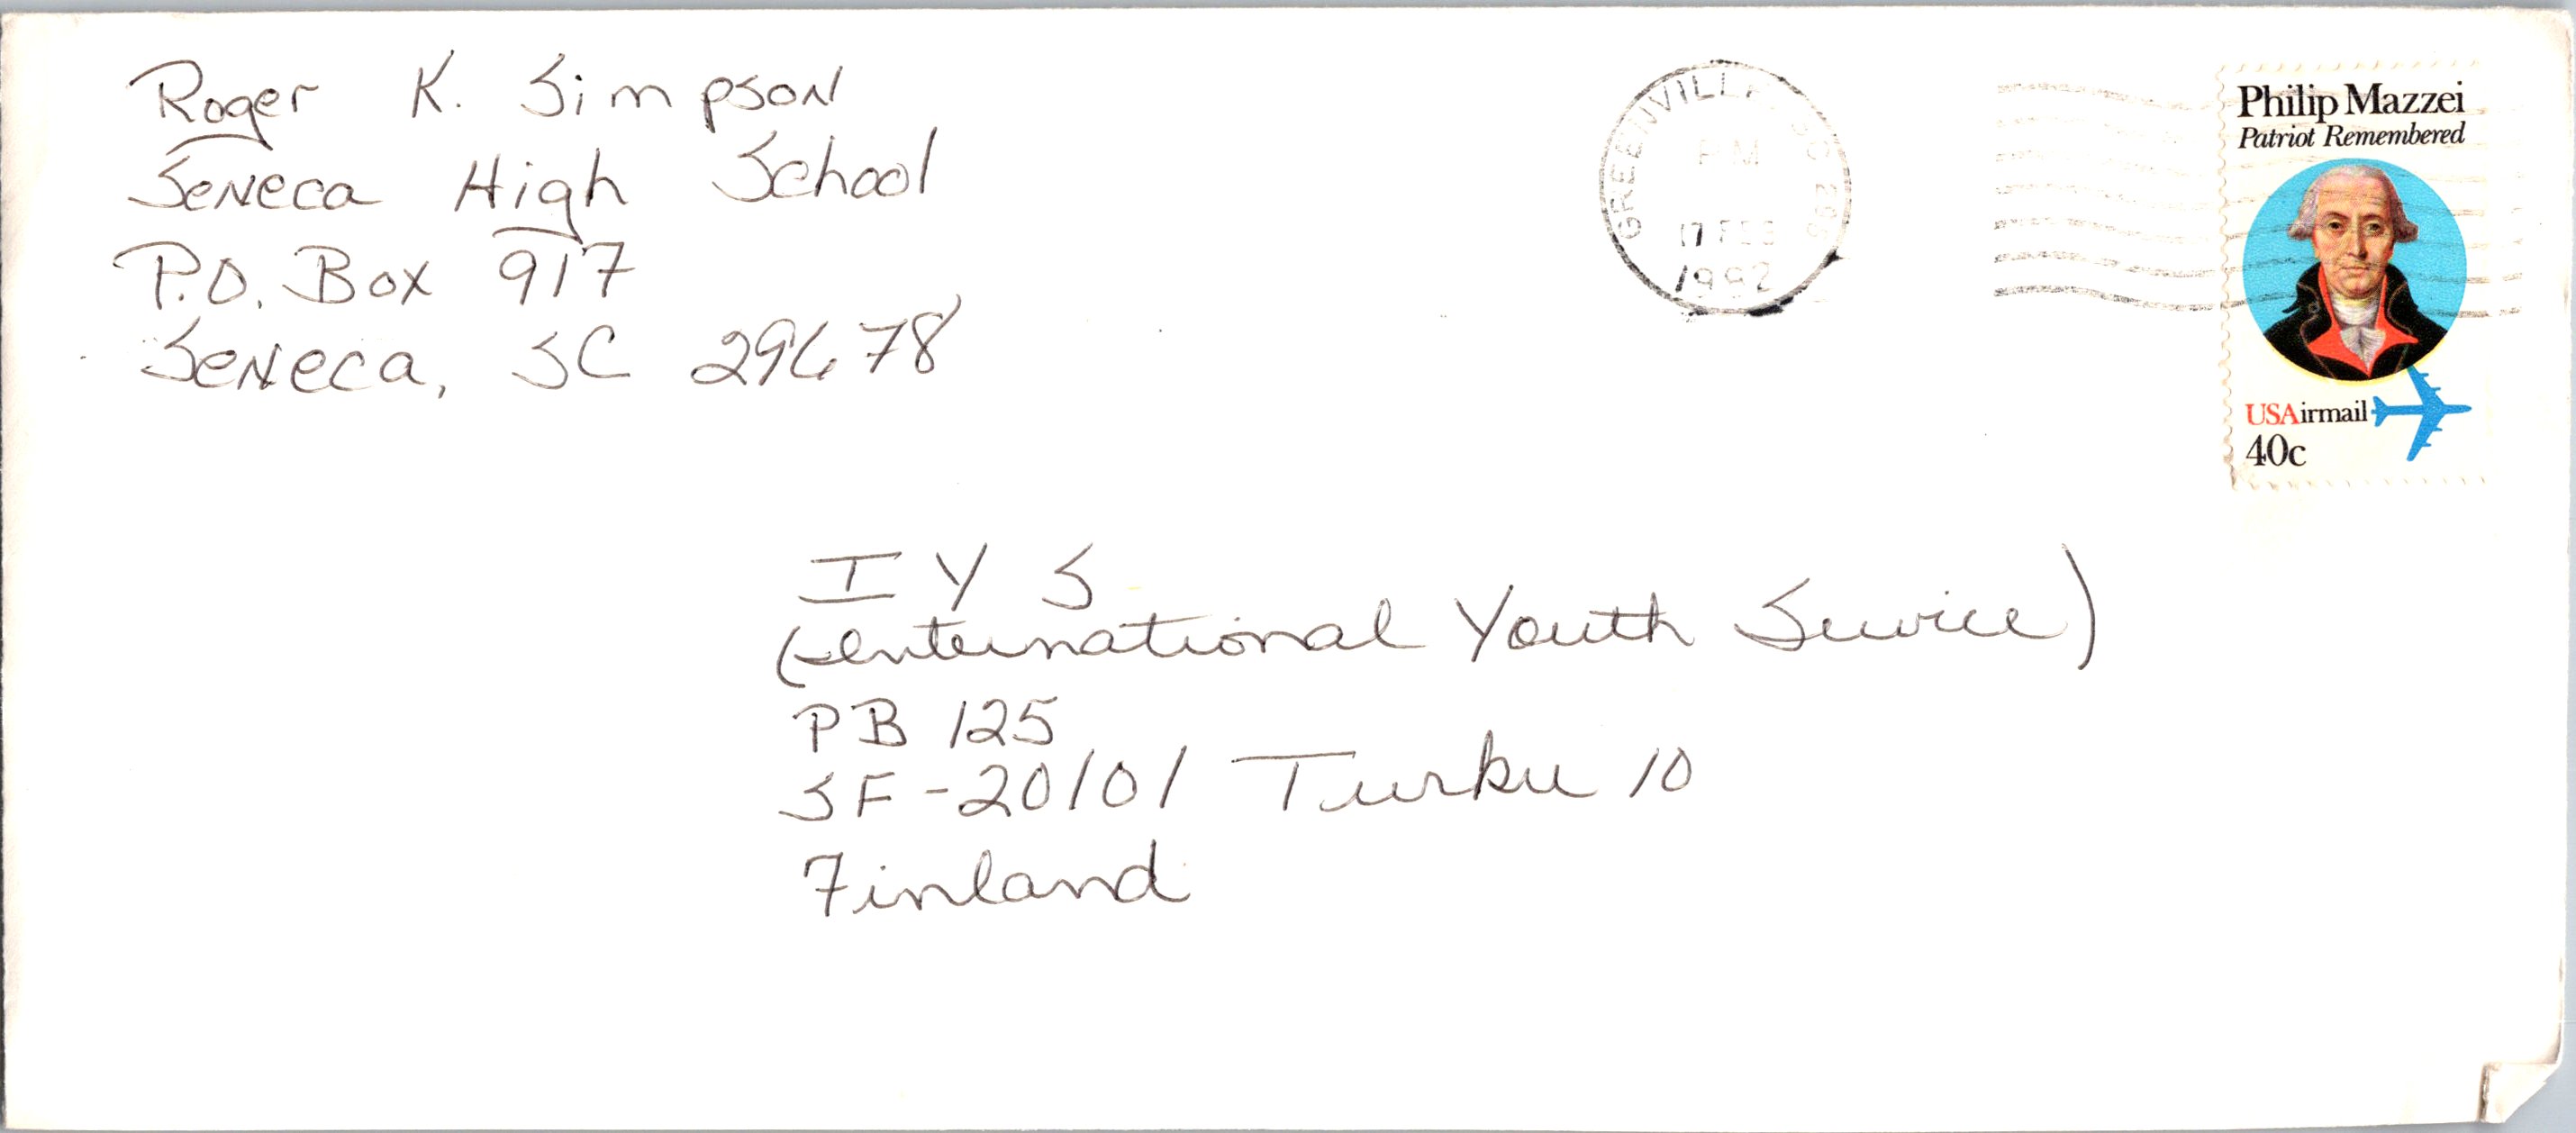 Roger K. Simpson
Seneca High School
P.O. Box 917
Seneca, SC 29678
GREENVILLE SC 296
PM
17 FEB
1992
Philip Mazzei
Patriot Remembered
USAirmail
40c
I Y S
(International Youth Service)
PB 125
SF-20101 Turku 10
Finland